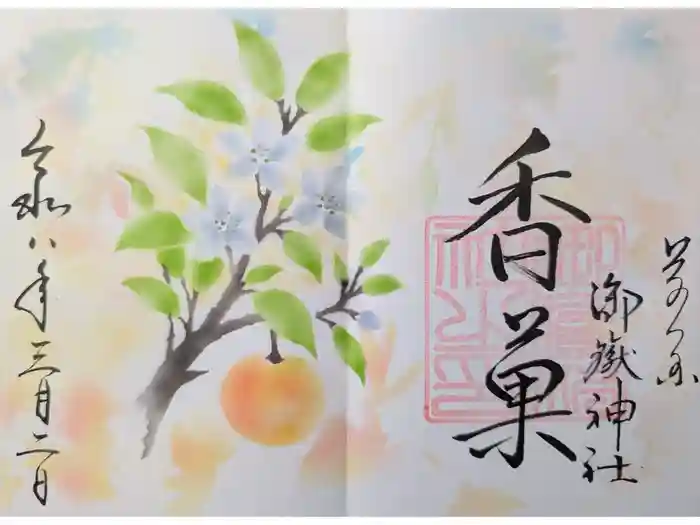 茶の木
御嶽神社
香菓
令和八年三月二日